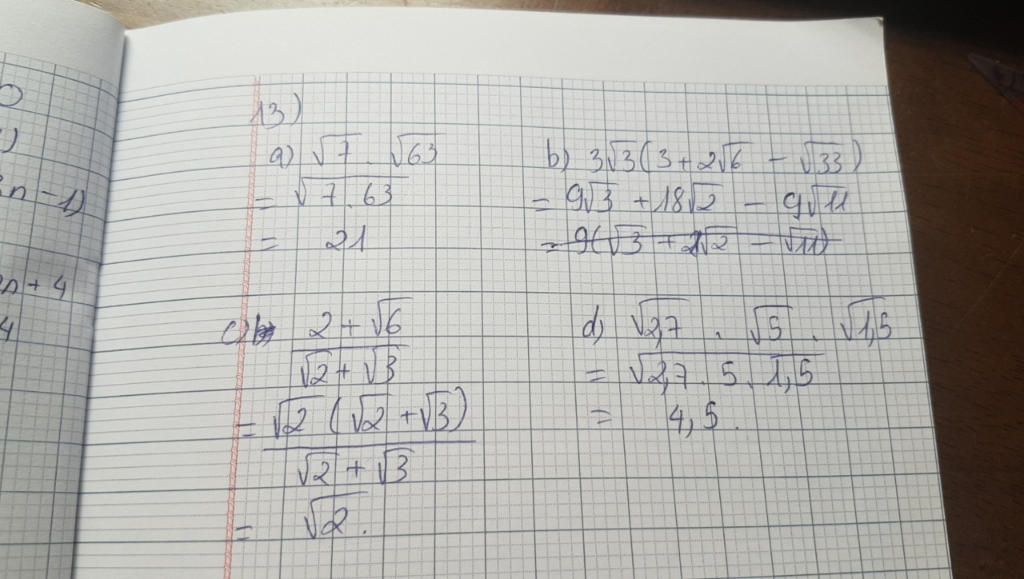 13)
a) √7 . √63
= √7.63
= 21
b) 3√3(3 + 2√6 - √33)
= 9√3 + 18√2 - 9√11
= 9(√3 + 2√2 - √11)
c) 2 + √6
√2 + √3
= √2 (√2 + √3)
√2 + √3
= √2.
d) √2,7 . √5 . √1,5
= √2,7 . 5 . 1,5
= 4,5.
- 1)
n + 4
4